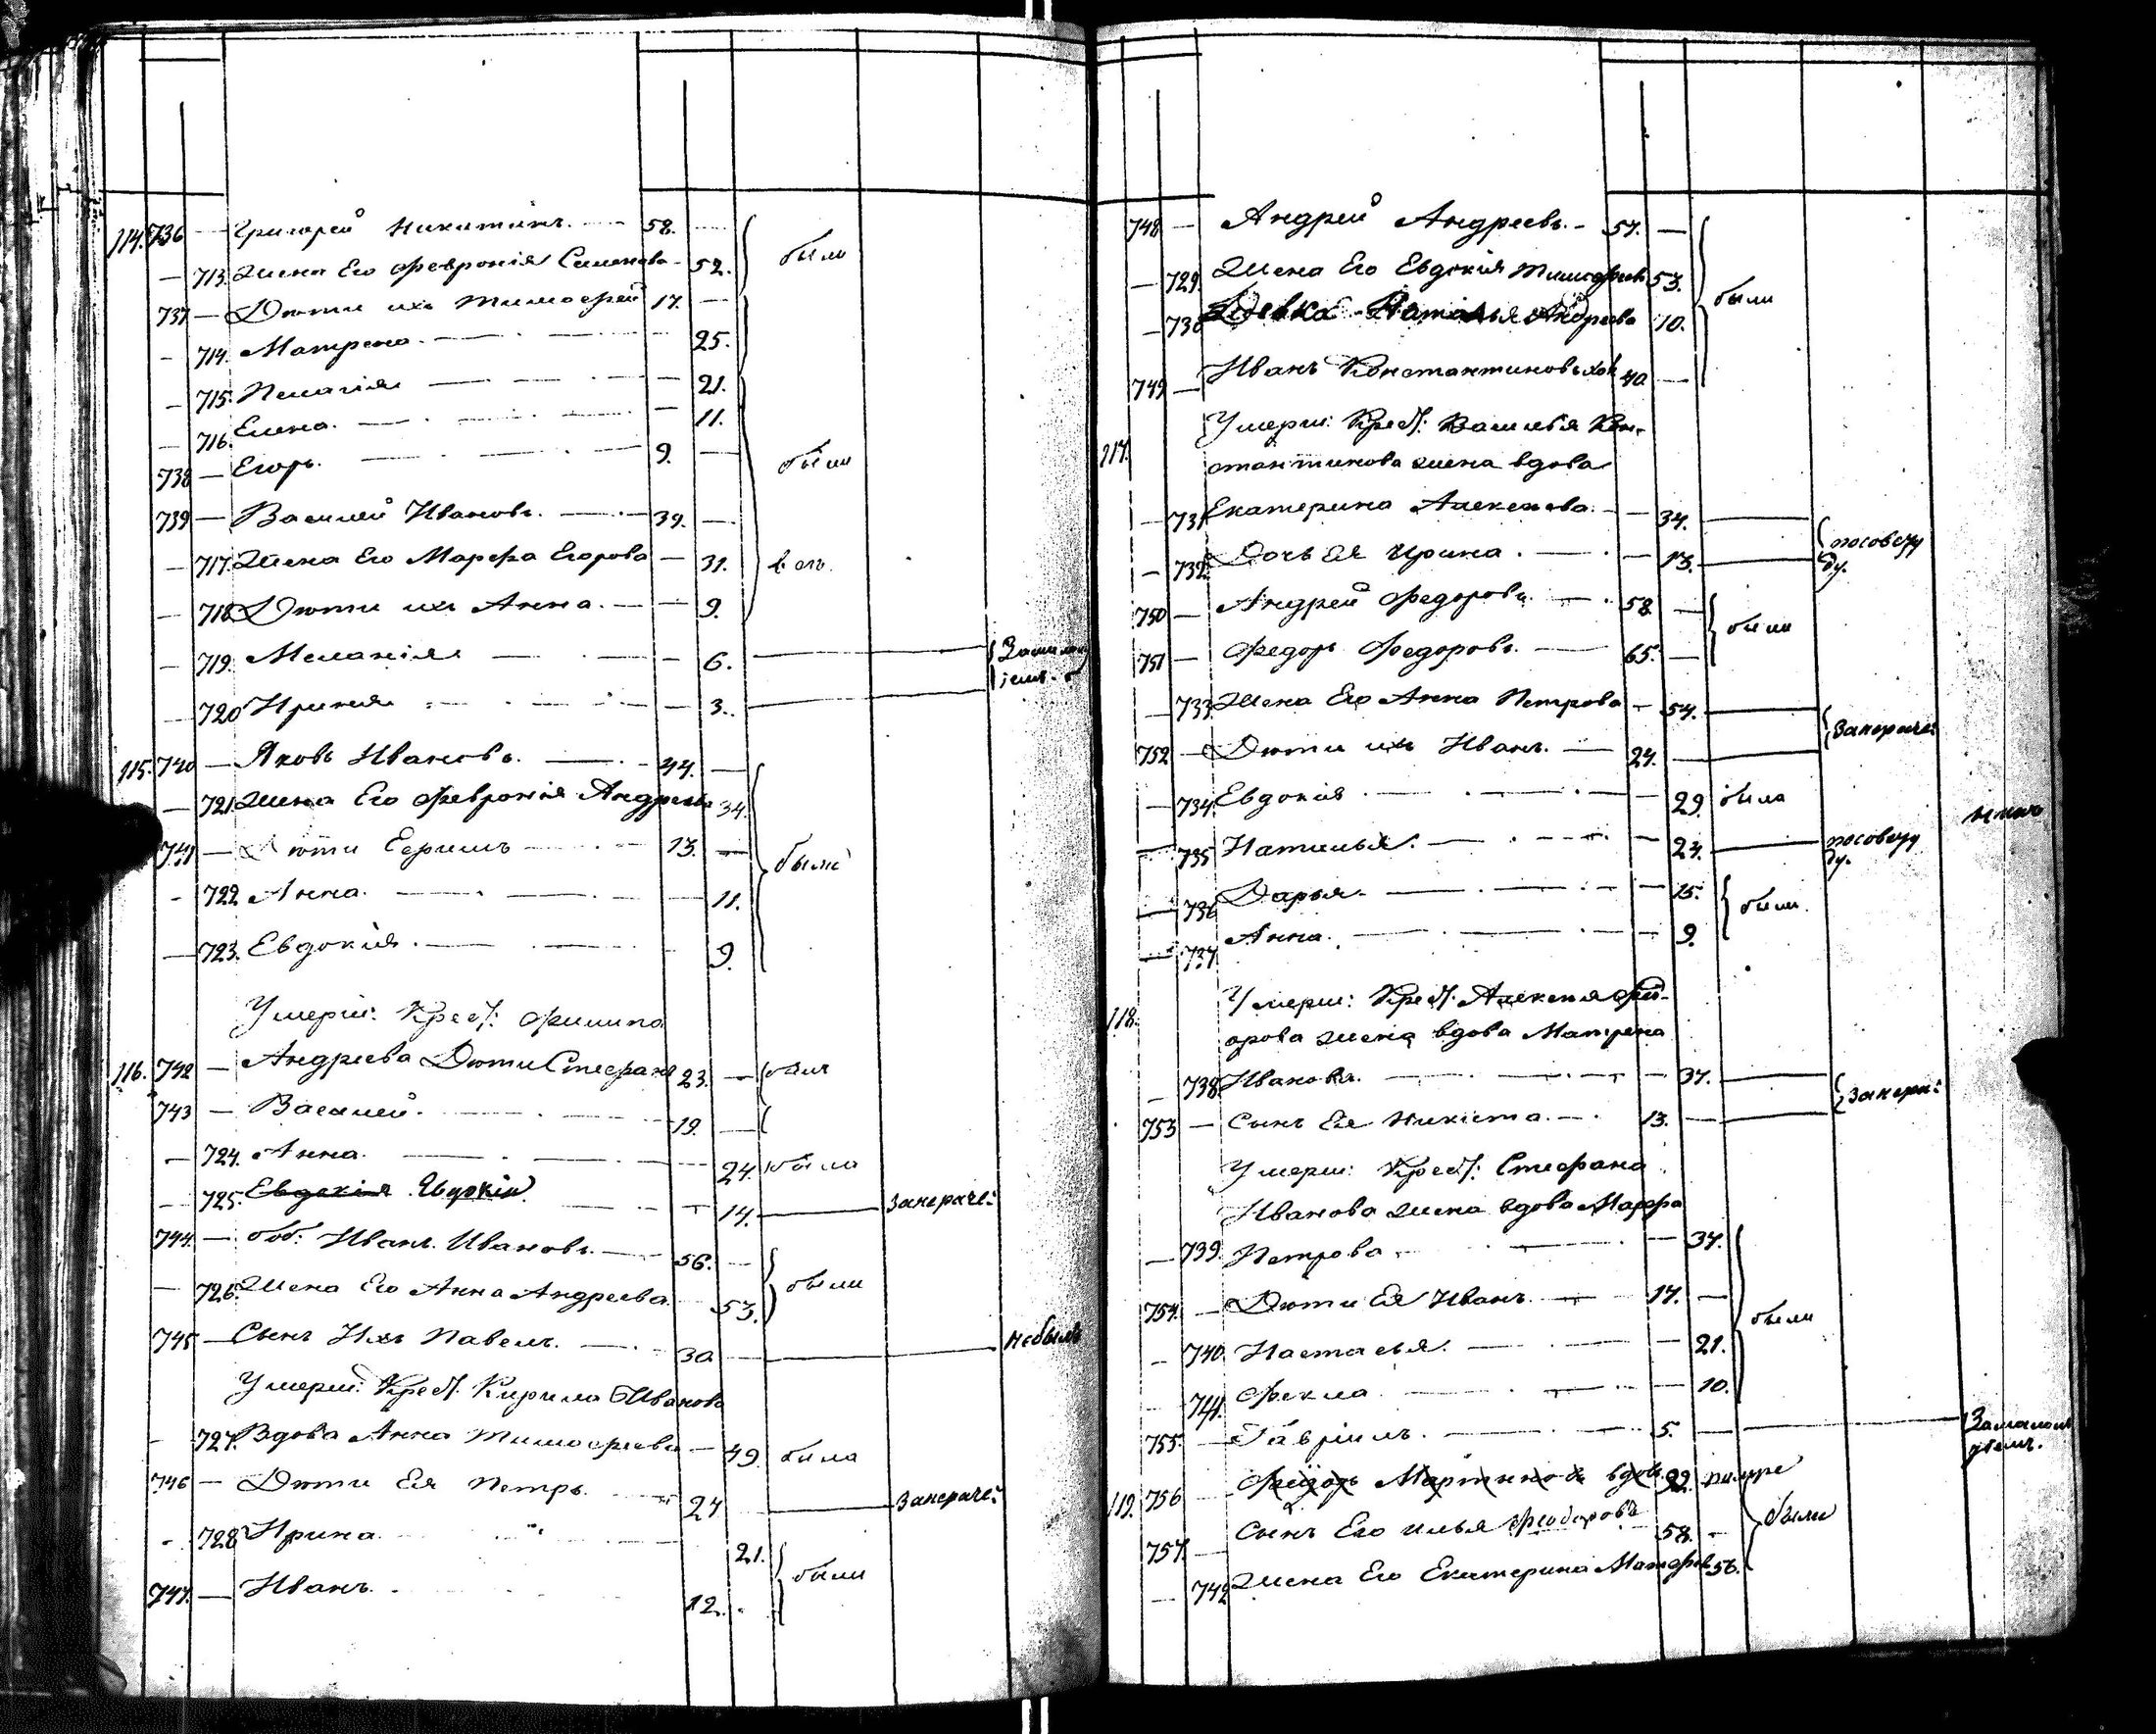 114. 736 — Григорей Никитинъ. — 58. —
— 713. Жена Его Февронія Семенова — 52. были
737 — Дѣти ихъ Тимофей 17. —
— 714. Матрена. — 25.
— 715. Пелагія — 21.
— 716. Елена. — 11.
738 — Егоръ. — 9. — были
739 — Василей Ивановъ. — 39. —
— 717. Жена Его Марфа Егорова — 31.
— 718 Дѣти ихъ Анна. — 9.
— 719. Меланія — 6. —
— 720 Ирина — 3. —
115. 740 — Яковъ Ивановъ. — 44. —
— 721. Жена Его Февронія Андреева 34.
741 — Дѣти Ефримъ — 13. — были
— 722 Анна. — 11.
— 723. Евдокія. — 9.
Умерш: Крест: Филипа
116. 742 — Андреева Дѣти Стефанъ 23. — былъ
743 — Василей. — 19. —
— 724. Анна. — 24. была
— 725. Евдокія Евдокія — 14. — Занераче:
744. — боб: Иванъ Ивановъ. — 56. —
— 726. Жена Его Анна Андреева. 53. были
745 — Сынъ Ихъ Павелъ. — 30 — небылъ
Умерш: Крест: Кирила Иванова
— 727. Вдова Анна Тимофеева — 49. была
746 — Дѣти Ея Петръ. 24 — Занераче:
— 728 Ирина. 21.
747. — Иванъ. 12. были
748 — Андрей Андреевъ. — 57. —
— 729. Жена Его Евдокія Тимофеев 53. были
— 730 Девка Наталья Андреева 10.
749 — Иванъ Константиновъ 40 —
Умерш: Крест: Василья Кон-
117. стантинова жена вдова
— 731 Екатерина Алексеева. — 34. —
— 732. Дочь Ея Ирина. — 13. —
750 — Андрей Федоровъ. — 58 —
751 — Федоръ Федоровъ. — 65. — были
— 733 Жена Его Анна Петрова — 54. —
752 — Дѣти ихъ Иванъ. — 24. — Занераче:
— 734 Евдокія — 29. была
— 735 Наталья. — 24. —
— 736 Дарья. — 15. были.
— 737 Анна. — 9.
118. Умерш: Крест: Алексея Фед-
орова жена вдова Матрена
— 738 Иванова. — 37. —
753 — Сынъ Ея Никита. — 13. — Занера:
Умерш: Крест: Стефана
Иванова жена вдова Марфа
— 739. Петрова. — 37.
754. — Дѣти Ея Иванъ. — 17. — были
— 740. Настасья. — 21.
— 741. Фекла. — 10.
755. — Гаврилъ. — 5. —
119. 756 — Федоръ Мартиновъ вдовъ 92.
757. — Сынъ Его Илья Феодоровъ 58. — были
— 742 Жена Его Екатерина Матфеев 56.